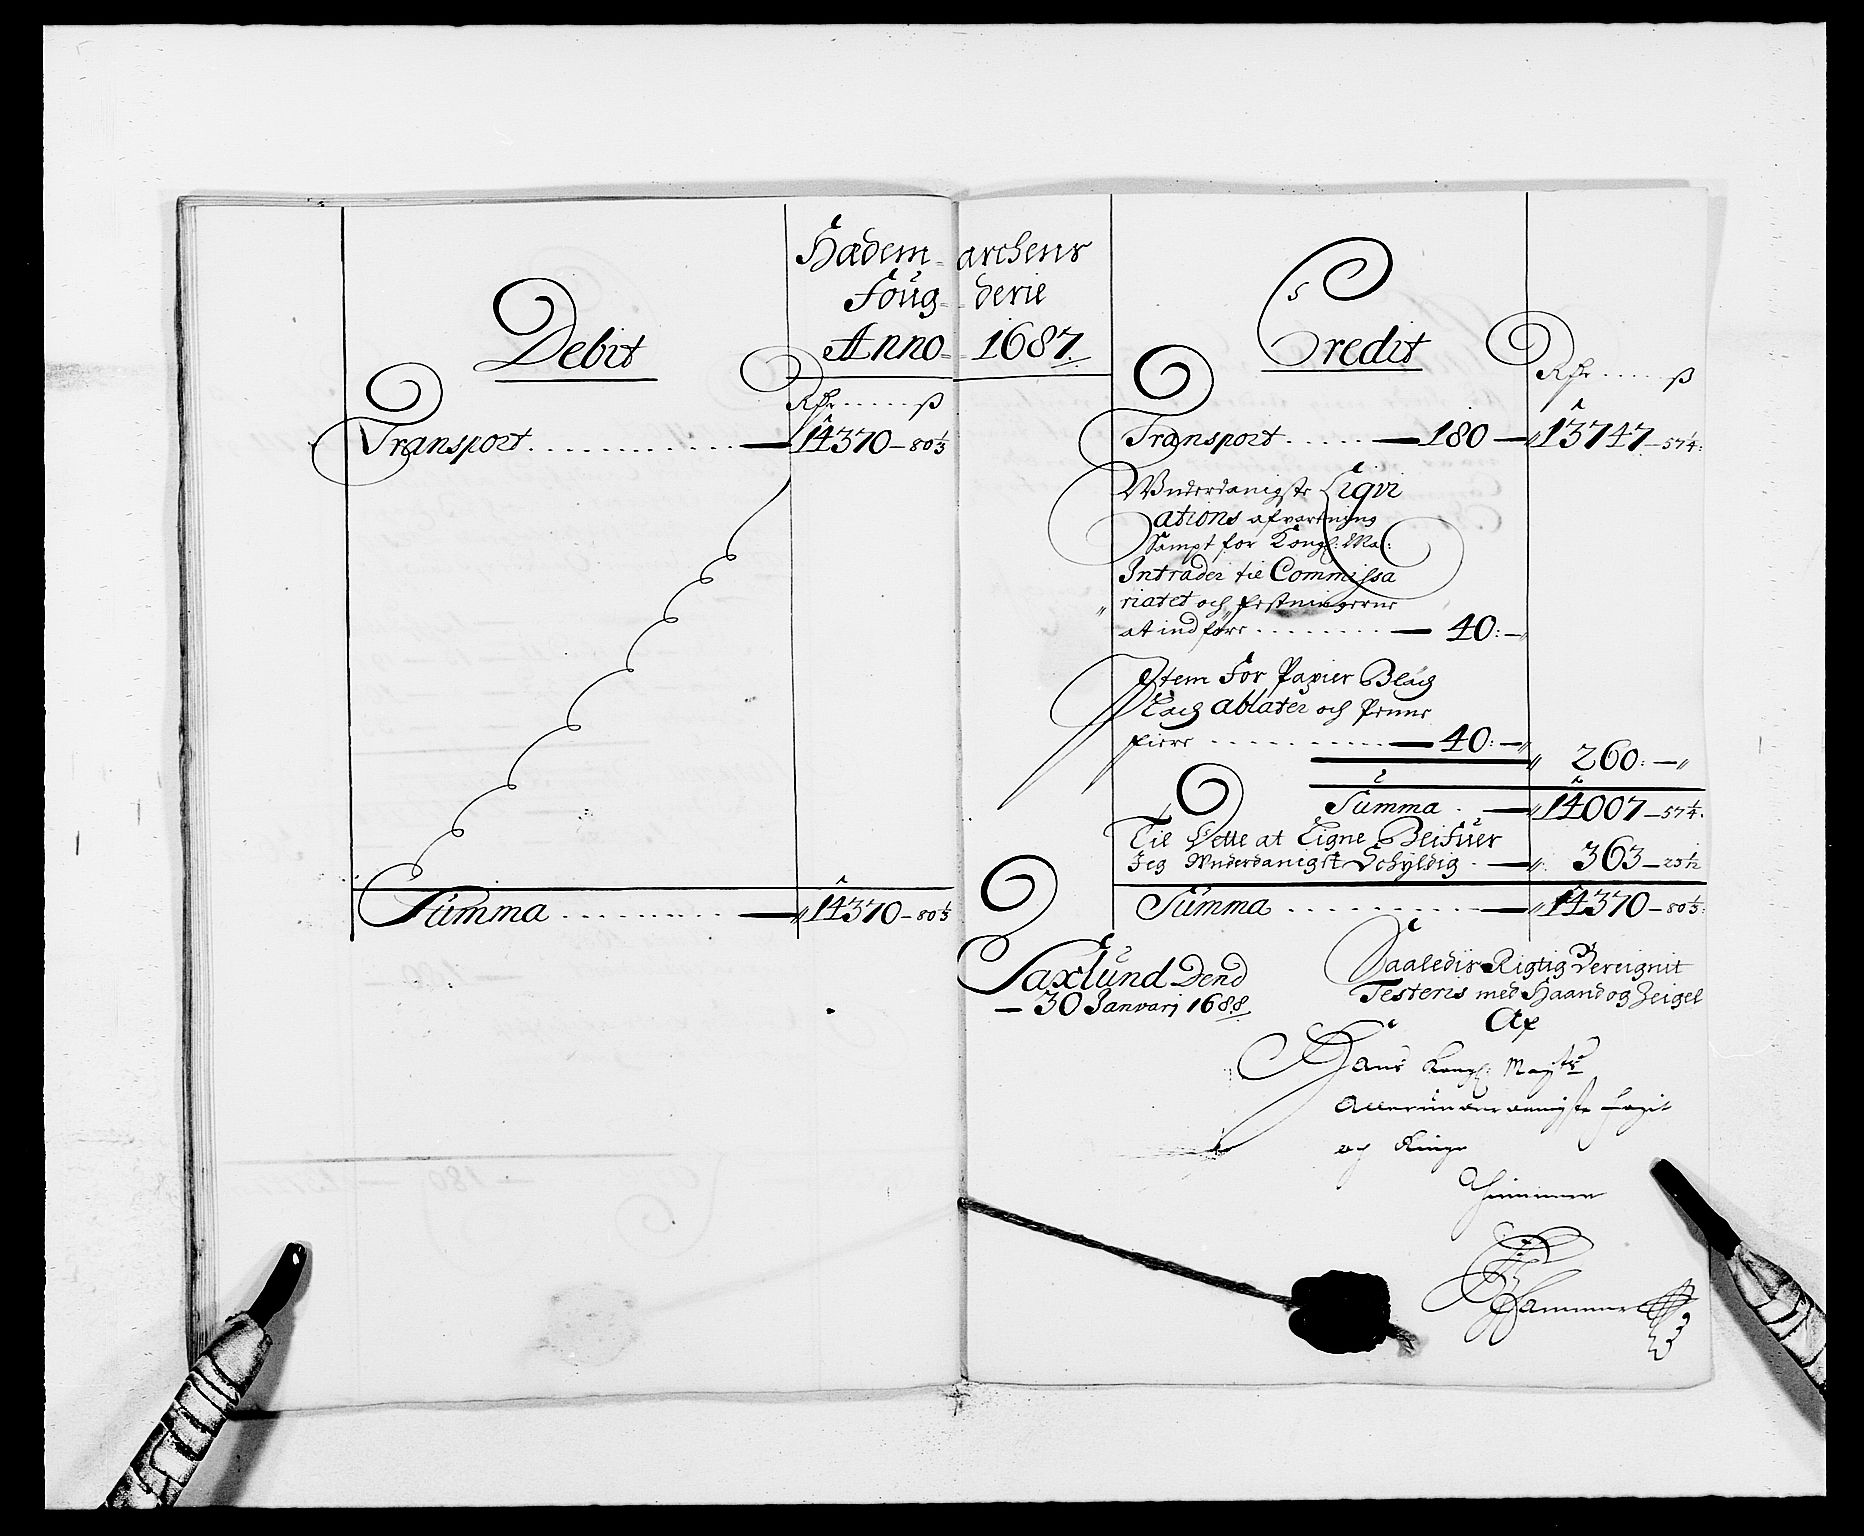 Hædem- archens
Foug- derie
Anno 1687.
Debit
Rdr ..... ß
Transport ............ 14370 - 80⅓
Summa .......... 14370 - 80⅓
Credit
Rdr ..... ß
Transport ..... 180 — 13747 - 57¼:
Wnderdanigste Liqvi
ations afvartning
Sampt for Kongl: Ma:
Intrader til Commissa
riatet och festningerne
at indføre ........ 40: —
Item For Papier Blæg
Lacg ablater och Penne
fiere .......... 40: — 260: —
Summa . — 14007 - 57¼.
Til Rette at Ligne Blifuer
Jeg Wnderdanigst Schyldig . — 363 - 23 1/12
Summa .......... 14370 - 80⅓:
Saxlund Dend
30 Janvarj 1688.
Saaledis Rigtig Bereignit
Testeris med Haand og Zeigel
Af
Hans Kongl: Mayts
Allerunderdanigste fogit
och
Hammer